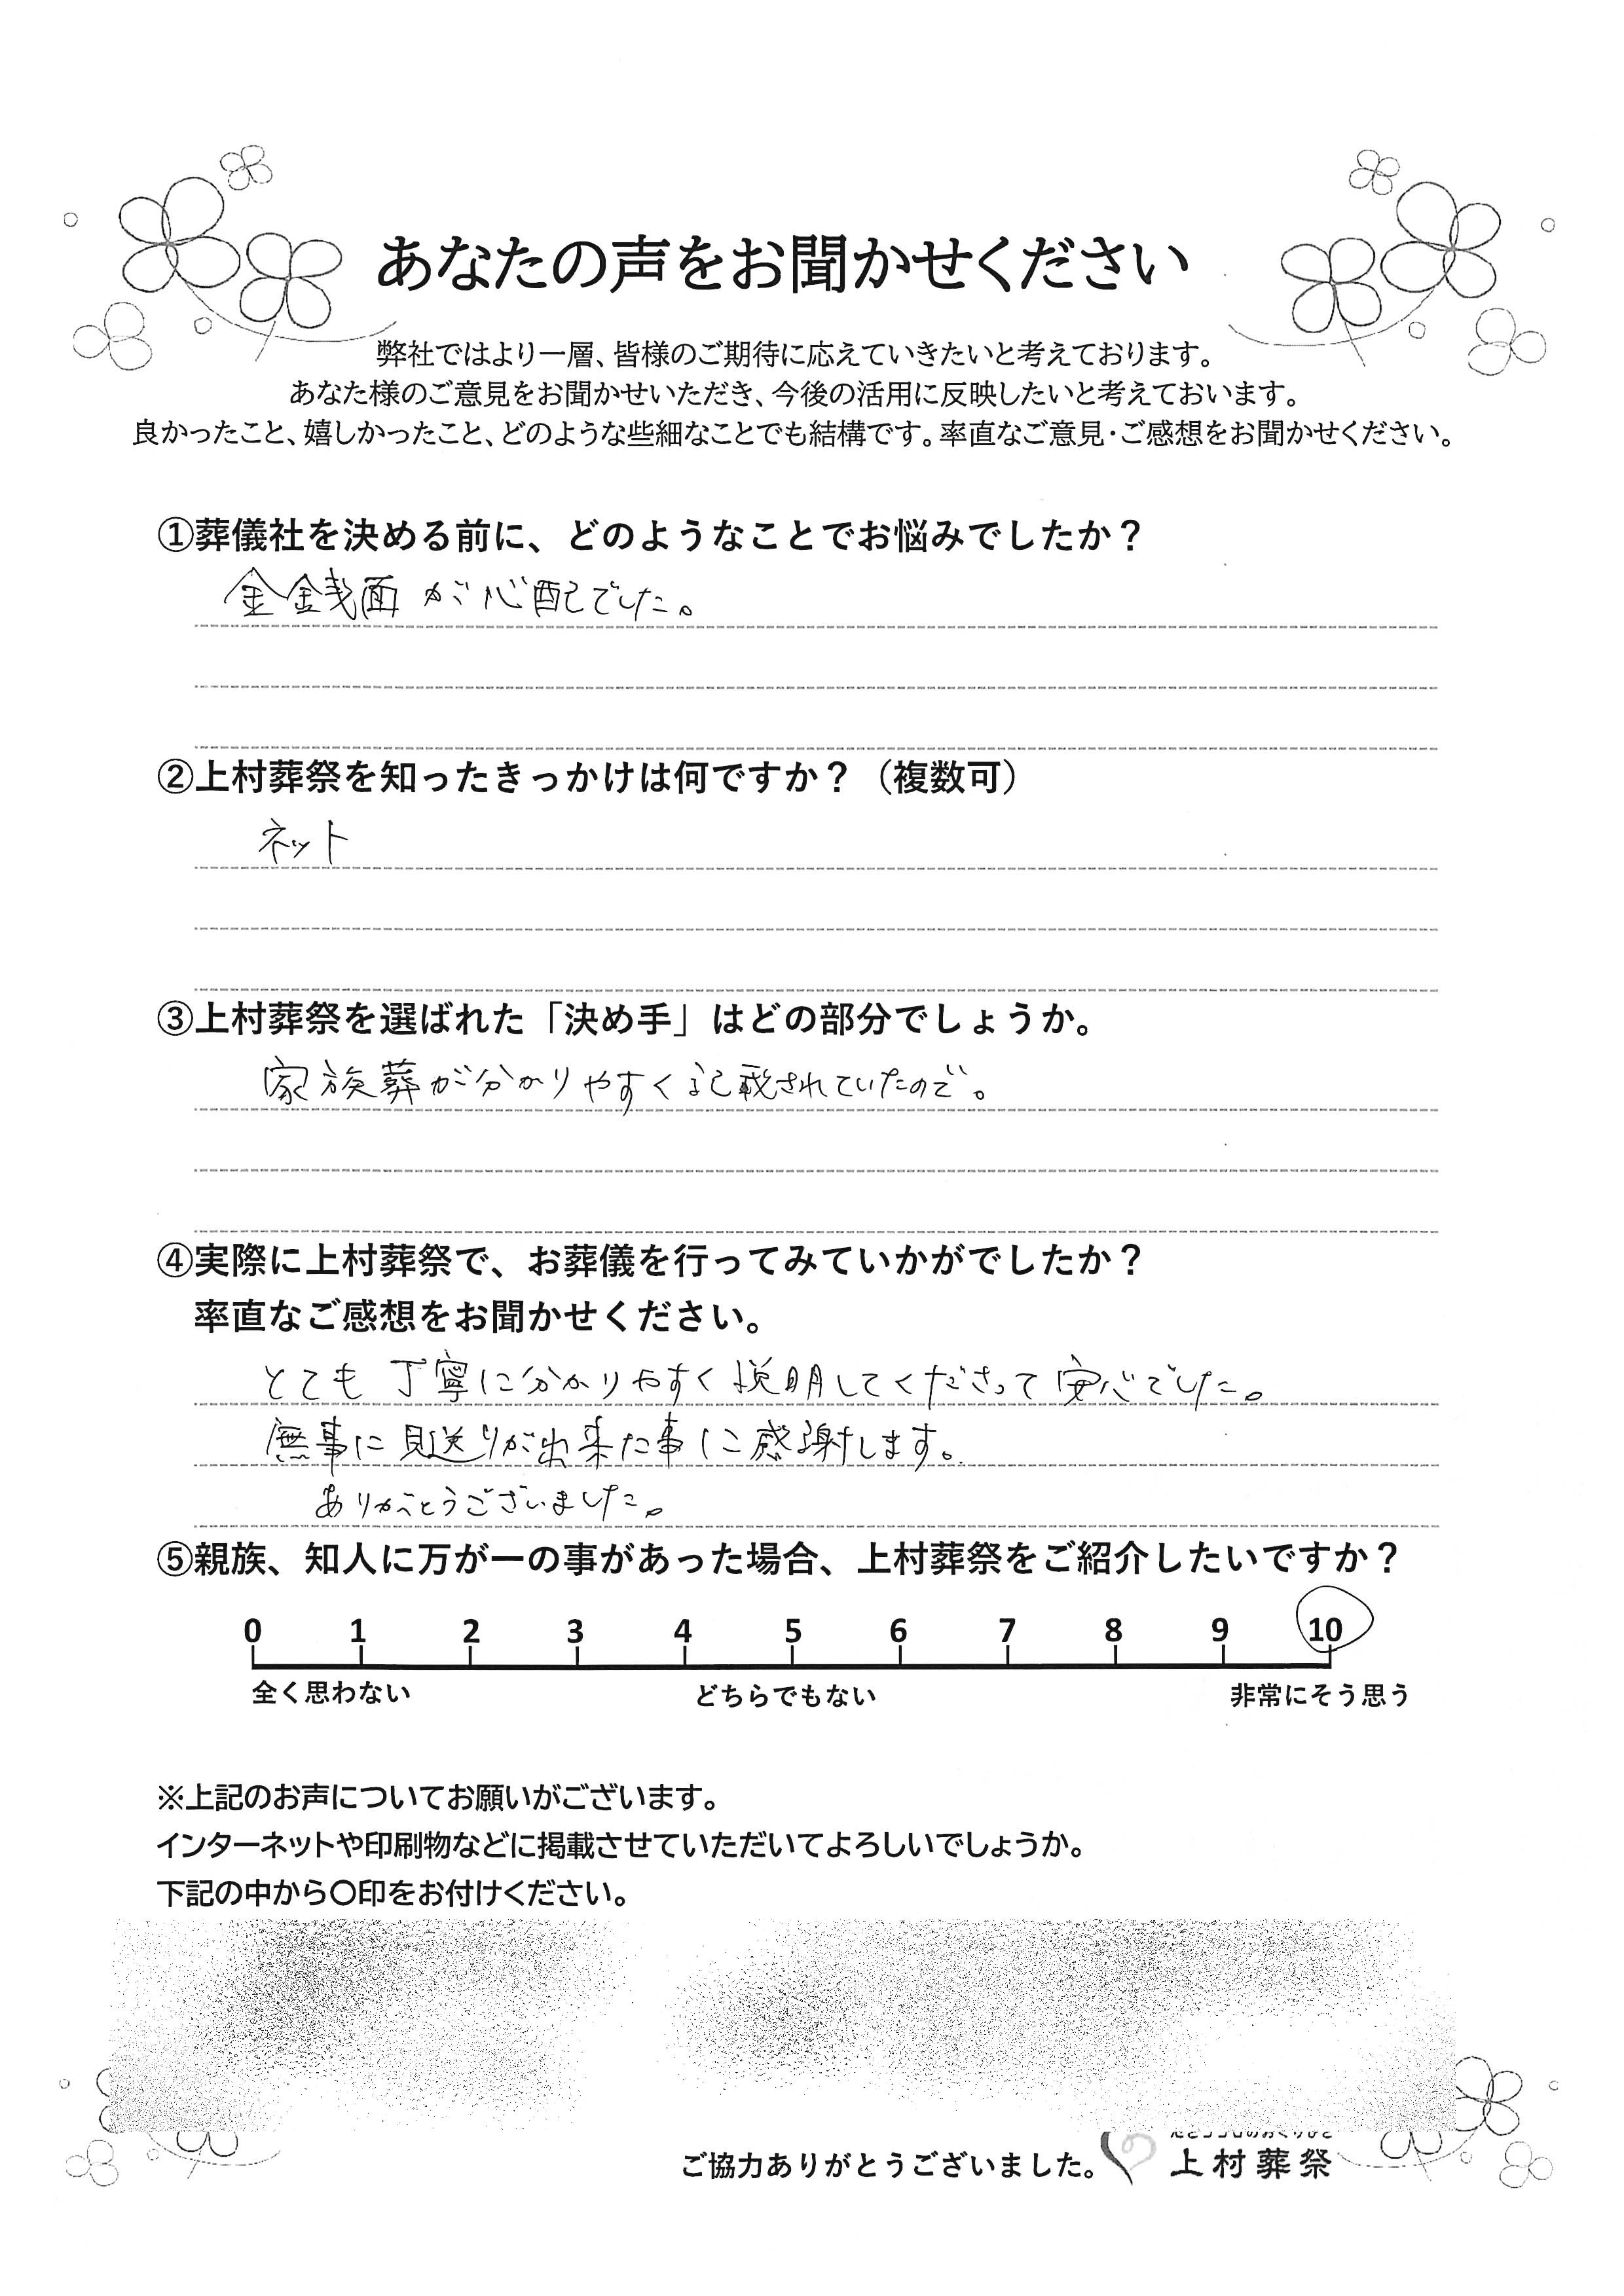 あなたの声をお聞かせください
弊社ではより一層、皆様のご期待に応えていきたいと考えております。
あなた様のご意見をお聞かせいただき、今後の活用に反映したいと考えておいます。
良かったこと、嬉しかったこと、どのような些細なことでも結構です。率直なご意見・ご感想をお聞かせください。
①葬儀社を決める前に、どのようなことでお悩みでしたか？
金銭面が心配でした。
②上村葬祭を知ったきっかけは何ですか？（複数可）
ネット
③上村葬祭を選ばれた「決め手」はどの部分でしょうか。
家族葬が分かりやすく記載されていたので。
④実際に上村葬祭で、お葬儀を行ってみていかがでしたか？
率直なご感想をお聞かせください。
とても丁寧に分かりやすく説明してくださって安心でした。
無事に見送りが出来た事に感謝します。
ありがとうございました。
⑤親族、知人に万が一の事があった場合、上村葬祭をご紹介したいですか？
0 1 2 3 4 5 6 7 8 9 10
全く思わない どちらでもない 非常にそう思う
※上記のお声についてお願いがございます。
インターネットや印刷物などに掲載させていただいてよろしいでしょうか。
下記の中から〇印をお付けください。
ご協力ありがとうございました。 上村葬祭